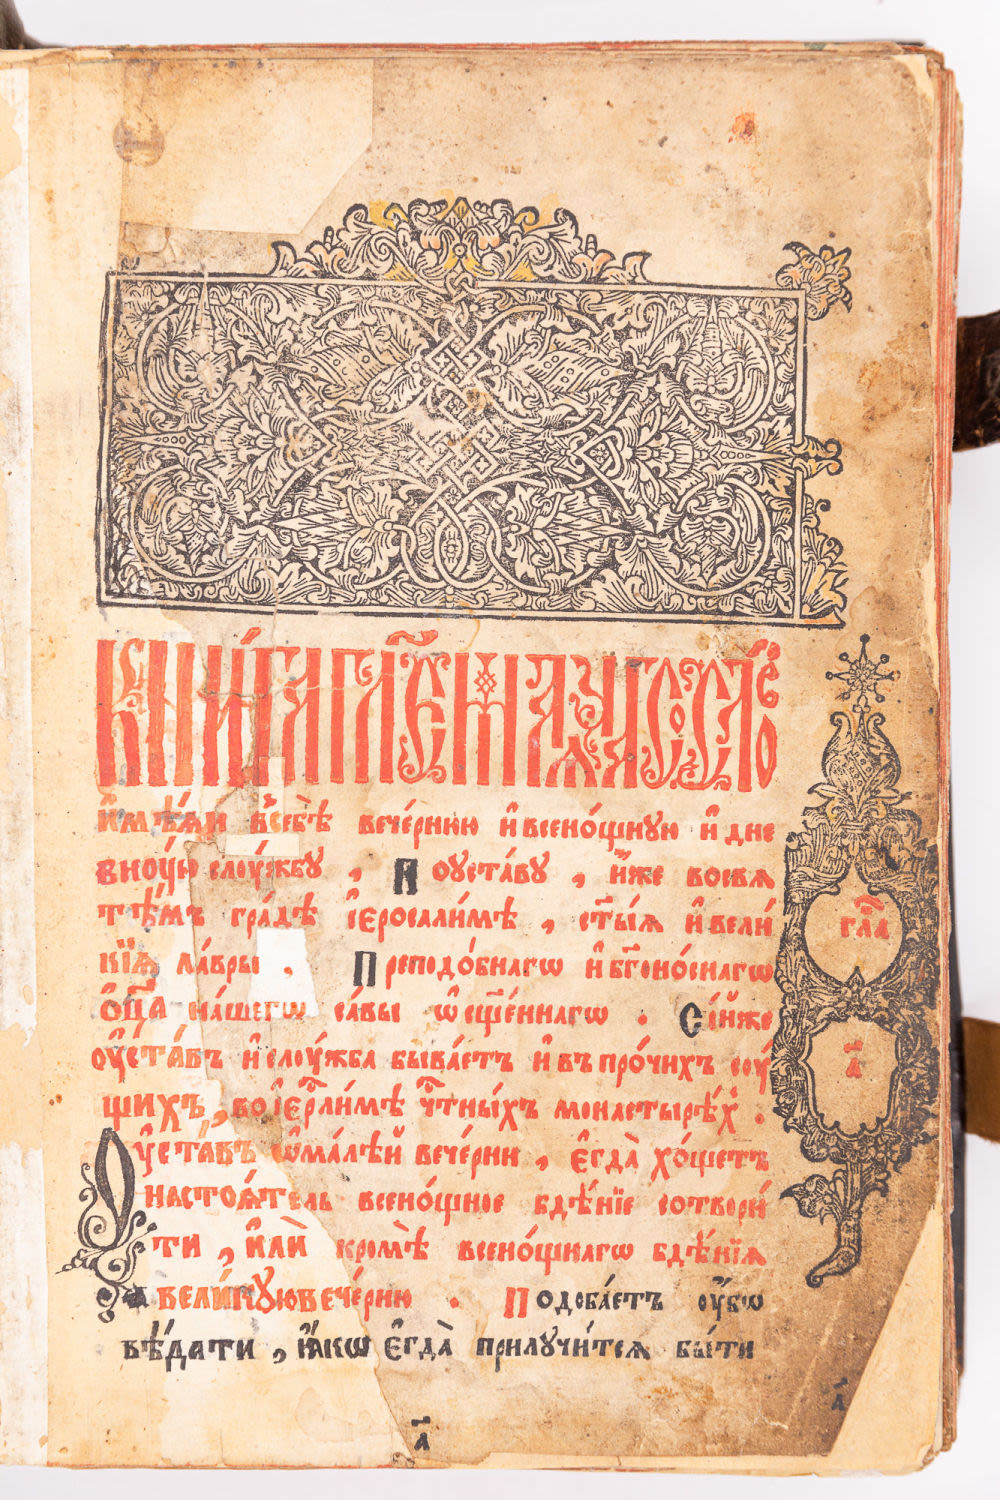 Кни́га гл҃емая оуча́сосло́в
и҆мѣ́ѧи в себѣ̀ вече́рнюю и҆ всено́щнꙋю и҆ дне
вно́ую слоу́жбꙋ , П оуста́вꙋ , и҆́же во свѧ
тѣ́мъ гра́дѣ і҆еросали́мѣ , ст҃ы́ѧ и҆ вели́
кїѧ ла́вры . Преподо́бнагѡ и҆ бг҃оно́снагѡ
ѻ҆ц҃а̀ на́шегѡ са́вы ѡ҆сщ҃е́ннагѡ . Сі́и же
оу҆ста́въ и҆ слоу́жба быва́етъ и҆ въ про́чихъ соу́
щихъ, во і҆ерⷭ҇ли́мѣ чⷭ҇тны́хъ монастырѣ́хъ .
Оу҆ста́въ ѡ҆ ма́лѣй вече́рни , є҆гда̀ хо́щетъ
настоѧ́тель всено́щное бдѣ́нїе сотвори́
ти , и҆лѝ кромѣ̀ всено́щнагѡ бдѣ́нїѧ
за вели́кꙋю вече́рню . Подоба́етъ оу҆́бѡ
вѣ́дати , ꙗ҆́кѡ є҆гда̀ прилꙋчи́тсѧ бы́ти
гла̑
а҃
а҃
а҃